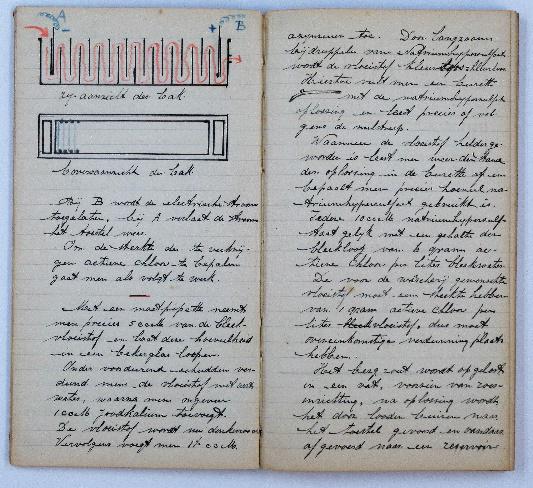 A
B
- +
zij-aanzicht der bak.
bovenaanzicht der bak.
Bij B wordt de electrische stroom
toegelaten, bij A verlaat de stroom
het toestel weer.
Om de sterkte der te verkrij-
gen actieve chloor te bepalen
gaat men als volgt te werk.
Met een maatpipette neemt
men precies 5 ccM. van de bleek-
vloeistof en laat deze hoeveelheid
in een bekerglas loopen.
Onder voortdurend schudden ver-
dund men de vloeistof met
water, waarna men ongeveer
10 ccM Joodkalium toevoegt.
De vloeistof wordt nu donkerrood
Vervolgens voegt men 10 ccM.
azijnzuur toe. Door langzaam
bijdruppelen van Natriumhyposulfiet
wordt de vloeistof kleurloos
Hiertoe vult men een burette
met de natriumhyposulfiet
oplossing en leest precies af vol
gens de nulstreep.
Wanneer de vloeistof helder ge-
worden is leest men weer den stand
der oplossing in de burette af en
bepaalt men precies hoeveel na-
triumhyposulfiet gebruikt is.
Iedere 10 ccM natriumhyposulf-
staat gelijk met een gehalte der
bleekloog van 6 gram ac-
tieve Chloor per liter bleekwater.
De voor de weverij gewenschte
vloeistof moet een sterkte hebben
van 1 gram actieve chloor per
liter vloeistof, dus moet
overeenkomstige verdunning plaats
hebben.
Het berg zout wordt opgelost
in een vat, voorzien van roer-
inrichting, na oplossing wordt
het door looden buizen naar
het toestel gevoerd en vandaar
afgevoerd naar een reservoir